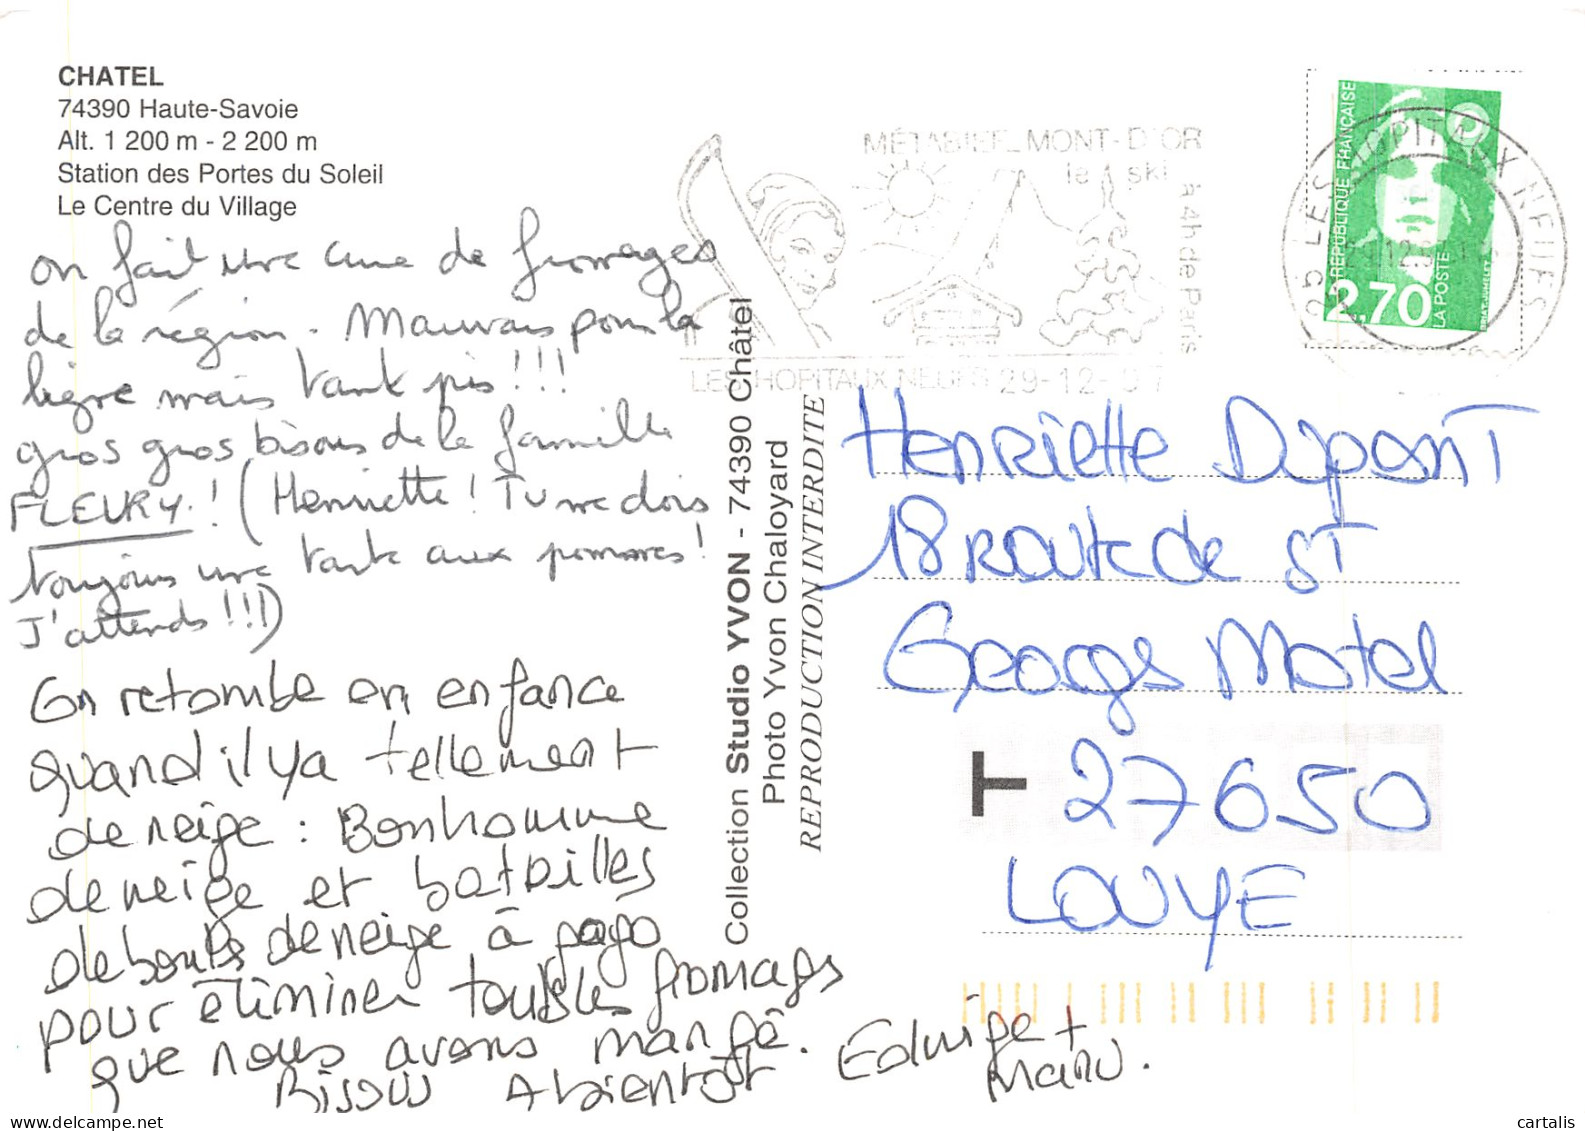 CHATEL
74390 Haute-Savoie
Alt. 1 200 m - 2 200 m
Station des Portes du Soleil
Le Centre du Village
on fait une cure de fromages
de la région. Mauvais pour la
ligne mais tant pis !!!
gros gros bisous de la famille
FLEURY ! (Henriette ! Tu me dois
toujours une tarte aux pommes !
J'attends !!!)
On retombe en enfance
quand il y a tellement
de neige : Bonhomme
de neige et batailles
de boules de neige à gogo
pour éliminer tous les fromages
que nous avons mangé.
Bisous A bientôt
Edwige +
Manu.
Collection Studio YVON - 74390 Châtel
Photo Yvon Chaloyard
REPRODUCTION INTERDITE
MÉTABIEF MONT-D'OR
le ski
à 4h de Paris
LES HOPITAUX NEUFS 29-12-97
25 LES HOPITAUX NEUFS
RÉPUBLIQUE FRANÇAISE
2,70
LA POSTE
Henriette Dupont
18 Route de ST
Georges Motel
T 27650
LOUYE
www.delcampe.net
cartalis